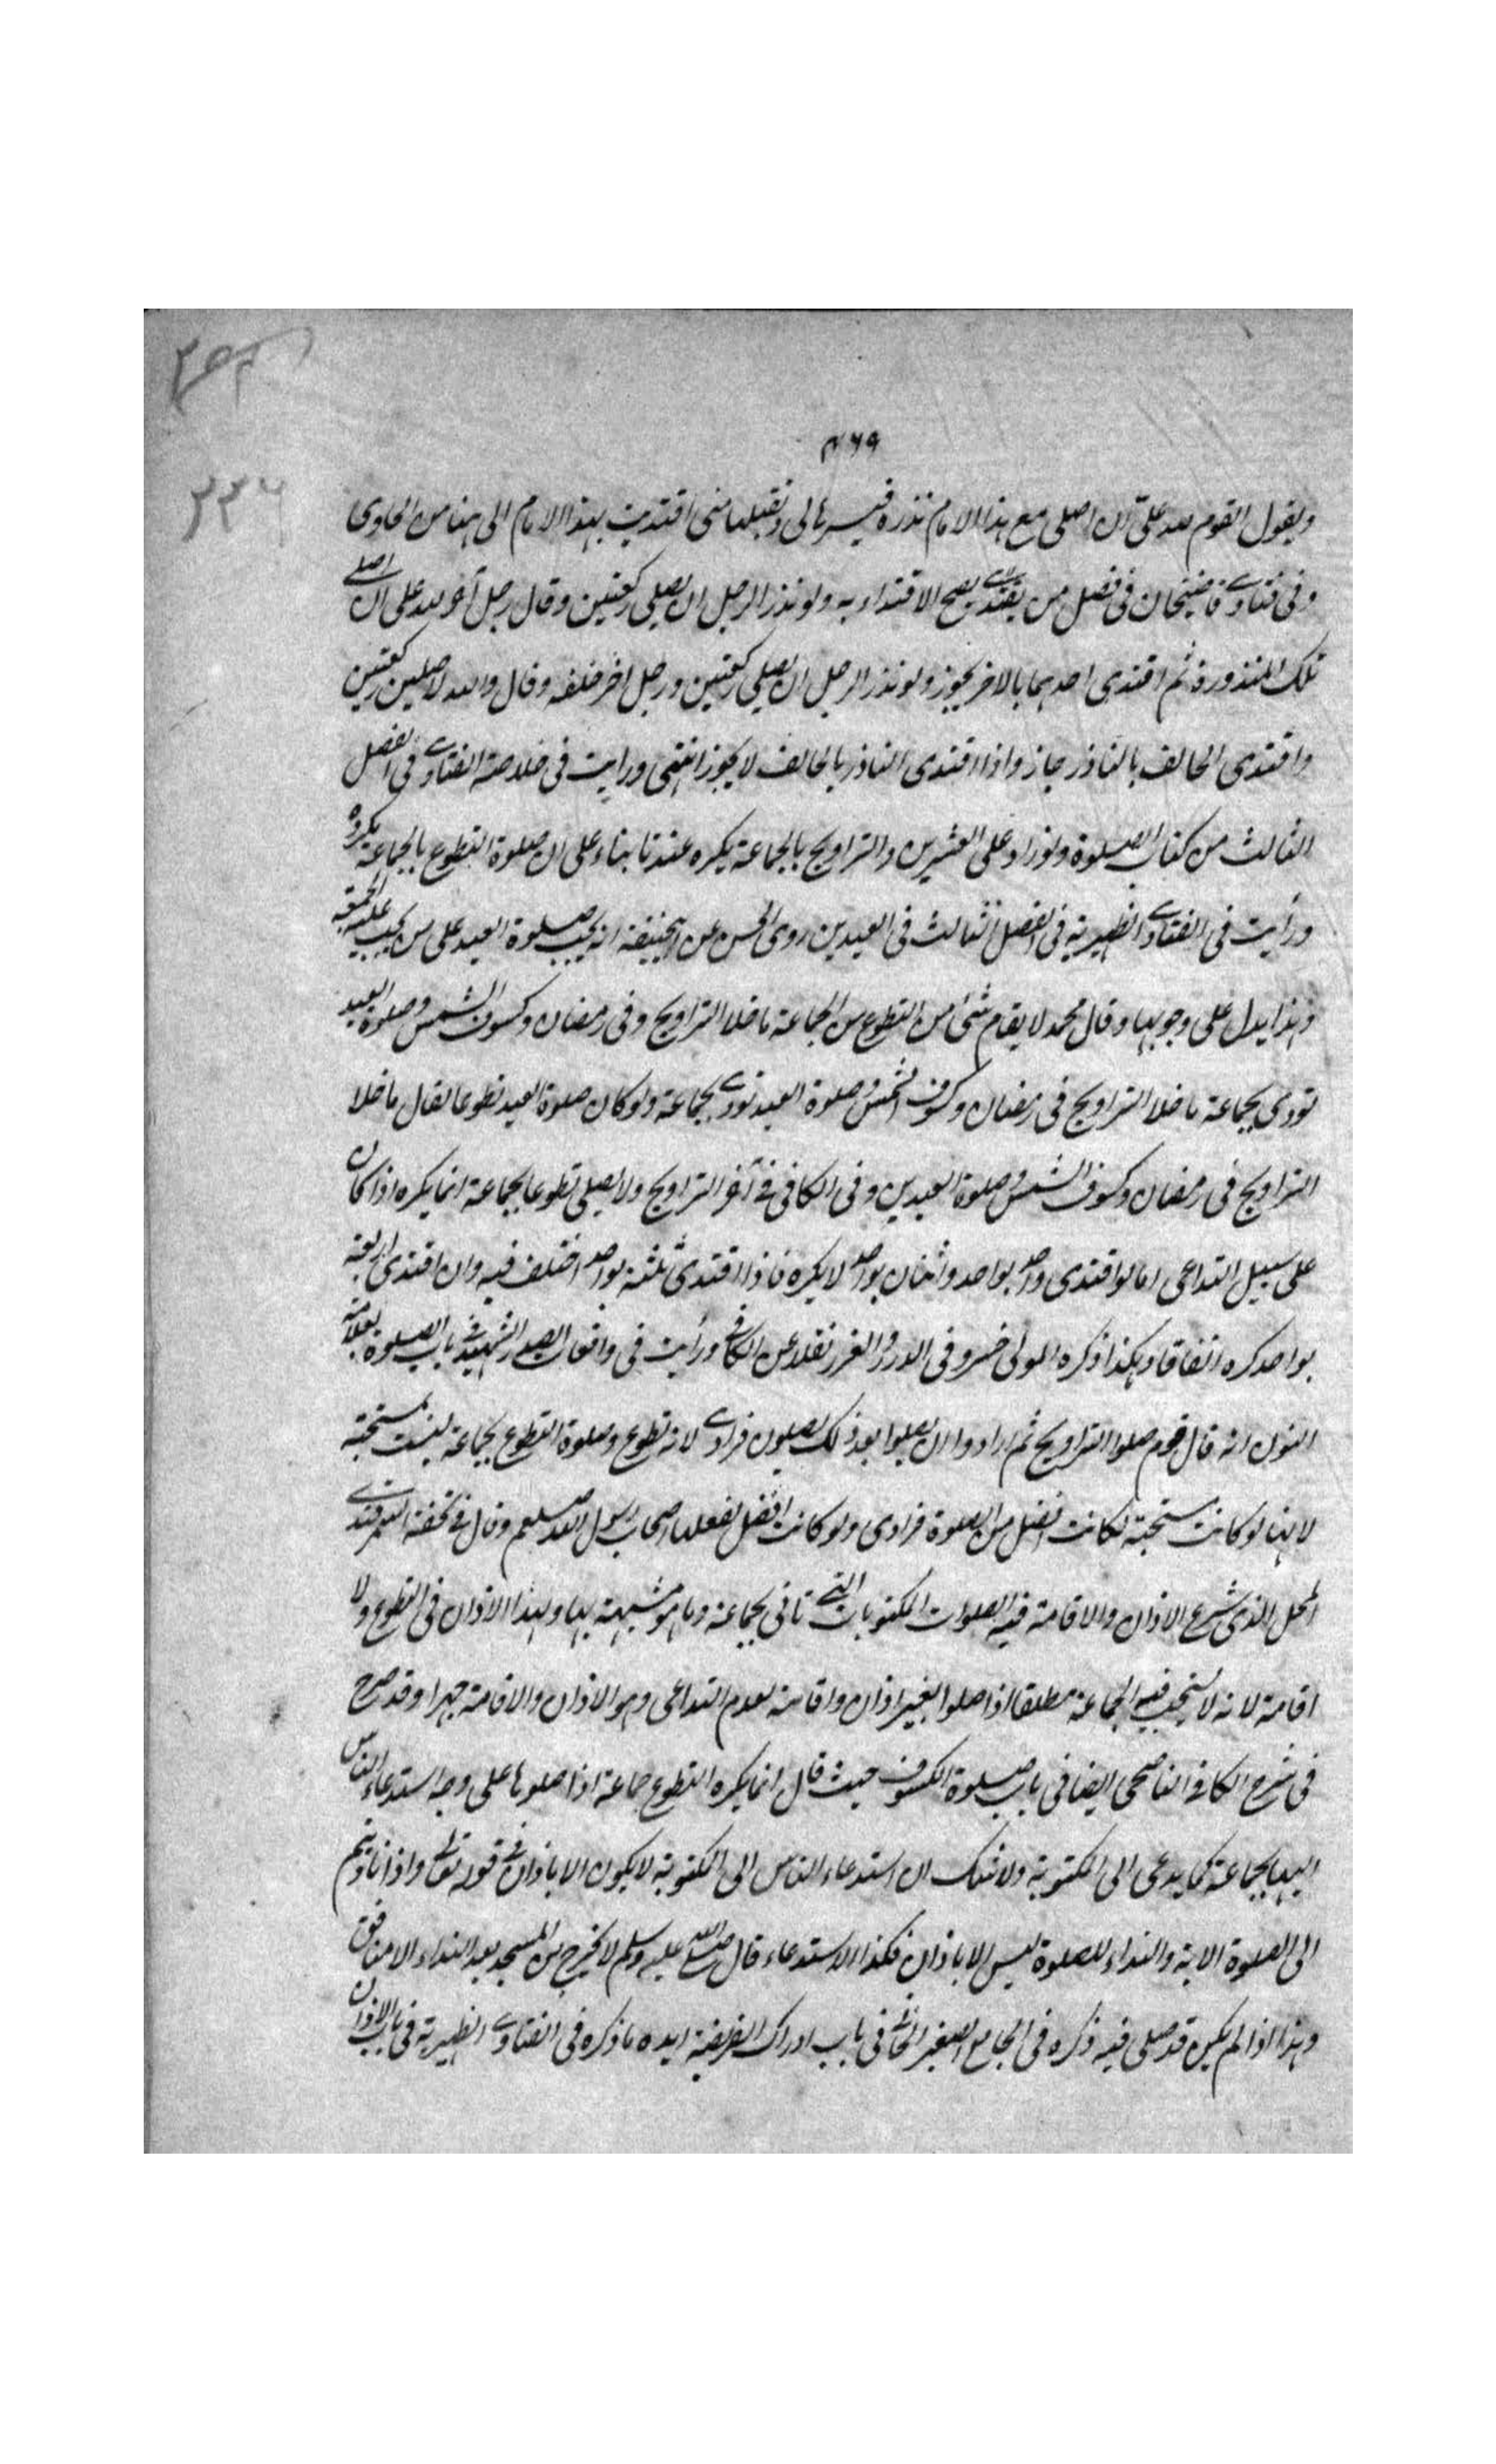 ٤٦٩
٣٣٤
ويقول القوم لله علىّ ان اصلى مع هذا الامام نذره فيسرها لى وتقبلها منى اقتديت بهذا الامام الى هنا من الحاوى
وفى فتاوى قاضيخان فى فصل من يقتدى يصح الاقتداء به ولو نذر الرجل ان يصلى ركعتين وقال رجل آخر لله على ان اصلى
تلك المنذورة ثم اقتدى احدهما بالاخر يجوز ولو نذر الرجل ان يصلى ركعتين ورجل اخر خلفه وقال والله لاصلين ركعتين
واقتدى الحالف بالناذر جاز واذا اقتدى الناذر بالحالف لا يجوز انتهى ورايت فى خلاصة الفتاوى فى الفصل
الثالث من كتاب الصلوة ولو زاد على العشرين والتراويح بالجماعة يكره عندنا بناء على ان صلوة التطوع بالجماعة يكره
ورأيت فى الفتاوى الظهيرية فى الفصل الثالث فى العيدين روى الحسن عن ابيحنيفة انه يجب صلوة العيد على من يجب عليه الجمعة
وهذا يدل على وجوبها وقال محمد لا يقام شئ من التطوع من الجماعة ما خلا التراويح وفى رمضان وكسوف الشمس وصلوة العيد
تودى بجماعة ما خلا التراويح فى رمضان وكسوف الشمس وصلوة العيد تودى بجماعة ولو كان صلوة العيد تطوعا لقال ما خلا
التراويح فى رمضان وكسوف الشمس وصلوة العيدين وفى الكافى فى آخر التراويح ولا يصلى تطوعا بجماعة انما يكره اذا كان
على سبيل التداعى اما لو اقتدى واحد بواحد واثنان بواحد لا يكره فاذا اقتدى ثلثة بواحد اختلف فيه وان اقتدى اربعة
بواحد كره اتفاقا وهكذا ذكره المولى خسرو فى الدرر والغرر نقلا عن الكافى ورأيت فى واقعات الصدر الشهيد فى باب الصلوة بعلامة
النون انه قال قوم صلوا التراويح ثم ارادوا ان يصلوا بعد ذلك يصلون فرادى لانه تطوع وصلوة التطوع بجماعة ليست مستحبة
لانها لو كانت مستحبة لكانت افضل من الصلوة فرادى ولو كانت افضل لفعلها اصحاب رسول الله صلعم وقال فى تحفة السمرقندى
المحل الذى شرع الاذان والاقامة فيه الصلوات المكتوبات التى تاتى بجماعة وما هو مشبهة بها ولهذا الاذان فى التطوع ولا
اقامة لانه لا يستحب فيه الجماعة مطلقا اذا صلوا بغير اذان واقامة لعدم التداعى وهو الاذان والاقامة جهرا وقد صرح
فى شرح الكافى الناصحى ايضا فى باب صلوة الكسوف حيث قال انما يكره التطوع جماعة اذا صلوها على وجه استدعاء الناس
اليها بجماعة كما يدعى الى المكتوبة ولا شك ان استدعاء الناس الى المكتوبة لا يكون الا باذان فى قوله تعالى واذا ناديتم
الى الصلوة الاية والنداء للصلوة ليس الا باذان فكذا الاستدعاء قال صلى الله عليه وسلم لا يخرج من المسجد بعد النداء الا منافق
وهذا اذا لم يكن قد صلى فيه ذكره فى الجامع الصغير الخانى فى باب ادراك الفريضة ايده ما ذكره فى الفتاوى الظهيرية فى باب الاذان